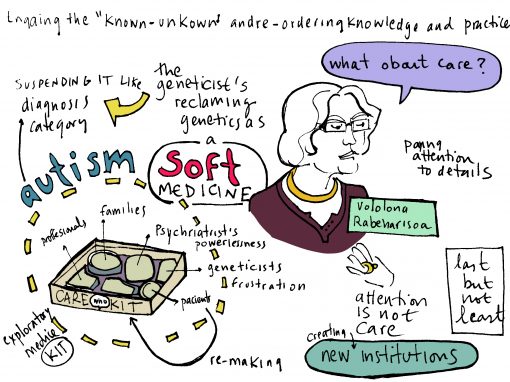 Engaing the "known-unkown" and re-ordering knowledge and practice
what about care?
SUSPENDING IT LIKE
diagnosis
category
the
geneticist's
reclaming
genetics as
a
soft
MEDICINE
autism
paying
attention
to details
Vololona
Rabeharisoa
families
profesionals
Psychriatrist's
powerlessness
geneticists
frustration
pacients
CARE WHO KIT
exploratory
medice
KIT
re-making
attention
is not
care
last
but
not
least
creating
new institutions